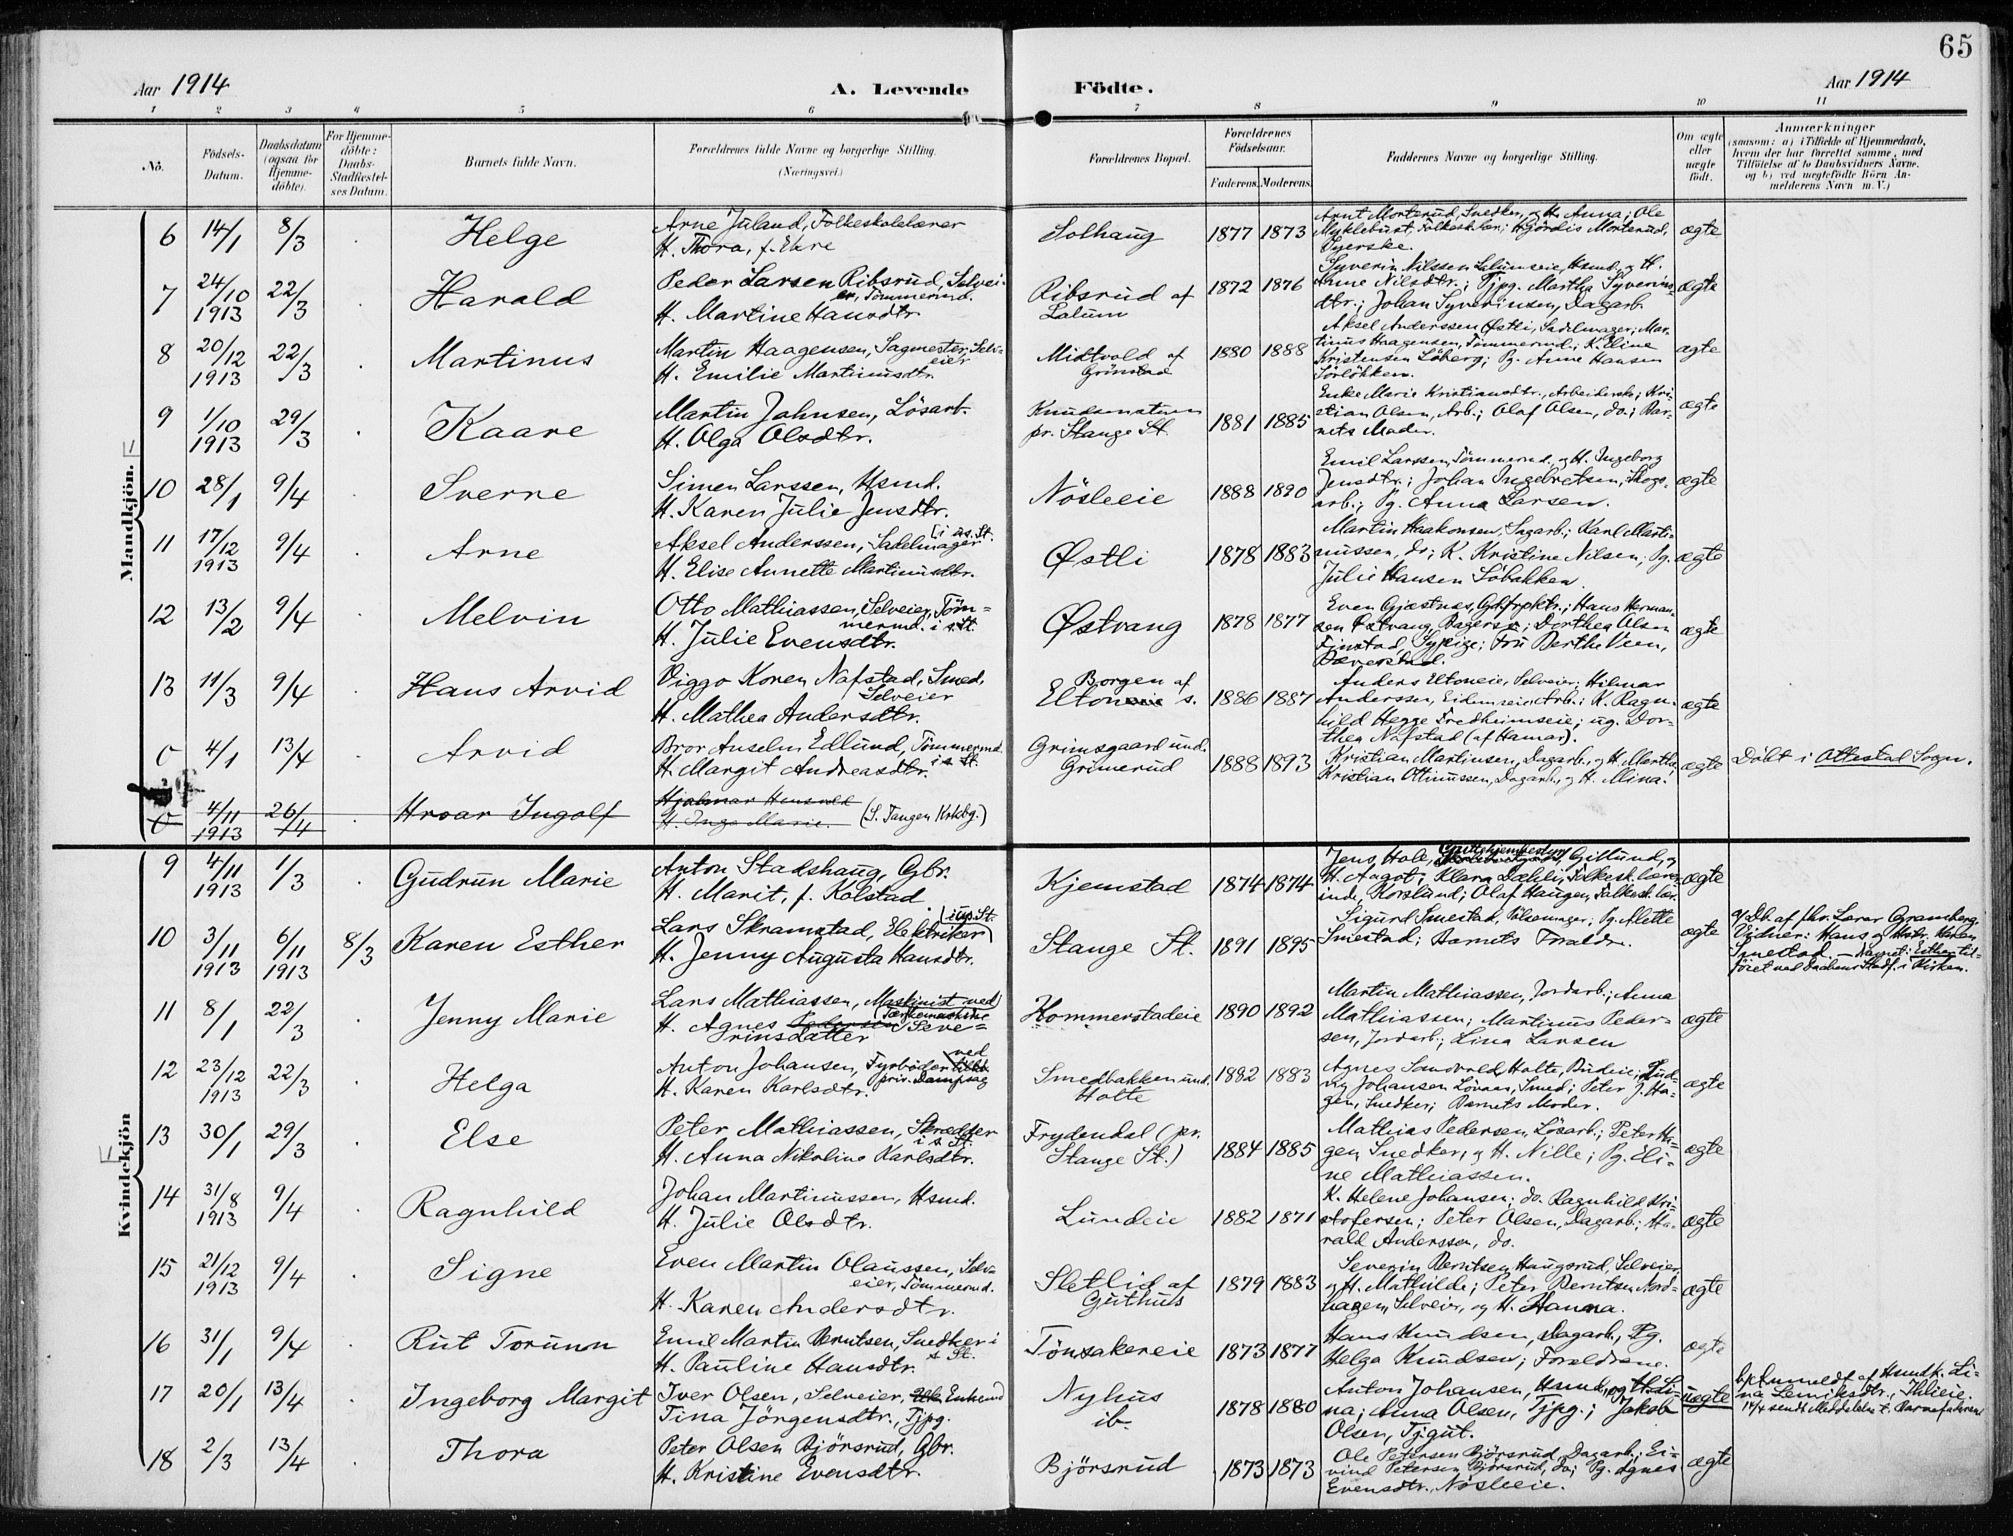 65
Aar 1914
A. Levende Födte.
Aar 1914
1 2 3 4 5 6 7 8 9 10 11
No.
Födsels-Datum.
Daabsdatum (ogsaa for Hjemmedöbte).
For Hjemmedöbte: Daabs-Stadfæstelses Datum.
Barnets fulde Navn.
Forældrenes fulde Navne og borgerlige Stilling.
(Næringsvei.)
Forældrenes Bopæl.
Forældrenes Födselsaar.
Faderens.
Moderens.
Faddernes Navne og borgerlige Stilling.
Om ægte eller uægte födt.
Anmærkninger
(saasom: a) i Tilfælde af Hjemmedaab, hvem der har forrettet samme, med Tilföielse af to Daabsvidners Navne, og b) ved uægtefödte Börn Anmelderens Navn m. V.)
Mandkjön.
6 14/1 8/3 Helge
Arne Juland, Folkeskolelærer
H. Thora, f. Ekre
Solhaug 1877 1873
Arnt Morterud, Snedker, og H. Anna; Ole
Myklebust, Folkesk.lær.; Hjördis Morterud,
Syerske.
ægte
7 24/10 1913 22/3 Harald
Peder Larsen Ribsrud, Selvei-
er, Tömmermd.
H. Martine Hansdtr.
Ribsrud af
Lalum
1872 1876
Syverin Nilssen Lalumseie, Hsmd, og H.
Anne Nilsdtr.; Tjpg. Martha Syverins-
dtr.; Johan Syverinsen, Dagarb.
ægte
8 20/12 1913 22/3 Martinus
Martin Haagensen, Sagmester, Selv-
eier
H. Emilie Martinusdtr.
Midtvold af
Grönstad
1880 1888
Aksel Anderssen Østli, Sadelmager; Mar-
tinus Haagensen, Tömmermd; K. Eline
Kristensen Löberg; Pg. Anne Hansen
Sörlökken.
ægte
9 1/10 1913 29/3 Kaare
Martin Johnsen, Lösarb.
H. Olga Olsdtr.
Knudsmatuen
pr. Stange St.
1881 1885
Enke Marie Kristiansdtr., Arbeiderske; Kri-
stian Olsen, Arb.; Olaf Olsen, do.; Bar-
nets Moder.
ægte
10 28/1 9/4 Sverre
Simen Larssen, Hsmd.
H. Karen Julie Jensdtr.
Nösleeie 1888 1890
Emil Larssen, Tömmermd, og H. Ingeborg
Jensdtr.; Johan Ingebretsen, Skogs-
arb.; Pg. Anna Larsen.
ægte
11 17/12 1913 9/4 Arne
Aksel Anderssen, Sadelmager
H. Elise Annette Martinusdtr.
Østli 1878 1883
Martin Haakonsen, Sagarb.; Karl Marti-
nussen, do; K. Kristine Nilsen; Pg.
Julie Hansen Löbakken.
ægte
12 13/2 9/4 Melvin
Otto Mathiassen, Selveier, Töm-
mermd. i s. St.
H. Julie Evensdtr.
Østvang 1878 1877
Even Gjæstnes, ; Hans Herman-
sen Østvang, Bagersv.; Dorthea Olsen
Finstad, Sypige; Fru Berthe Veen,
Bæverstad.
ægte
13 11/3 9/4 Hans Arvid
Viggo Koren Nafstad, Smed,
Selveier
H. Mathea Andersdtr.
Borgen af
Eltoneie s.
1886 1887
Anders Eltoneie, Selveier; Hilmar
Anderssen, , Arb.; K. Ragn-
hild Hegge Fredheimseie; ug. Dor-
thea Nafstad (af Hamar).
ægte
0 4/1 13/4 Arvid
Bror Anselm Edlund, Tömmermd.
i s. St.
H. Margit Andreasdtr.
Grimsgaard und.
Grimerud
1888 1893
Kristian Martinsen, Dagarb., og H. Martha;
Kristian Ottinussen, Dagarb., og H. Mina.
ægte
Döbt i Ottestad Sogn.
0 4/11 1913 26/4 Hroar Ingolf
Hjalmar Hensvold
H. Inga Marie. (S. Tangen Krkbg.)
Kvindekjön
9 4/11 1913 1/3 Gudrun Marie
Anton Stadshaug, Gbr.
H. Marit, f. Kolstad
Kjemstad 1874 1874
Jens Hole, , Gillund, og
H. Aagot; Klara Dæhli, Folkesk.lærer-
inde, Korslund; Olaf Haugen, Folkesk.lær.
ægte
10 3/11 1913 6/11 1913 8/3 Karen Esther
Lars Skramstad, Elektriker
H. Jenny Augusta Hansdtr.
Stange St. 1891 1895
Sigurd Smestad, Pölsemager; Pg. Alette
Smestad; Barnets Forældre.
ægte
a) Db. af fhv. Lærer Gramberg.
Vidner: Hans og Hstr. Karen
Smestad. – Navnet: Esther til-
föiet ved Daabens Stadf. i Kirken.
11 8/1 22/3 Jenny Marie
Lars Mathiassen, Maskinist ved
Tærskemaskine
H. Agnes Pedersen Seve-
rinsdatter
Hommerstadeie 1890 1892
Martin Mathiassen, Jordarb.; Anna
Mathiassen; Martinus Peder-
sen, Jordarb.; Lina Larsen
ægte
12 23/12 1913 22/3 Helga
Anton Johansen, Fyrböder ved
priv. Dampsag
H. Karen Karlsdtr.
Smedbakken und.
Holte
1882 1883
Agnes Sandvold Holte, Budeie; Lud-
vig Johansen Lövaas, Smed; Peter J. Ha-
gen, Snedker; Barnets Moder.
ægte
13 30/1 29/3 Else
Peter Mathiassen, Skrædder
i s. St.
H. Anna Nikoline Karlsdtr.
Frydendal (pr.
Stange St.)
1884 1885
Mathias Pedersen, Lösarb.; Peter Ha-
gen, Snedker, og H. Nille; Pg. Eli-
ne Mathiassen.
ægte
14 31/8 1913 9/4 Ragnhild
Johan Martinussen, Hsmd.
H. Julie Olsdtr.
Lundeie 1882 1871
K. Helene Johansen; do. Ragnhild Kri-
stofersen; Peter Olsen, Dagarb.; Ha-
rald Anderssen, do.
ægte
15 21/12 1913 9/4 Signe
Even Martin Olaussen, Selv-
eier, Tömmermd.
H. Karen Andersdtr.
Sletlid af
Guthus
1879 1883
Severin Berntsen Haugsrud, Selveier,
og H. Mathilde; Peter Berntsen Nord-
hagen, Selveier, og H. Hanna.
ægte
16 31/1 9/4 Rut Torunn
Emil Martin Berntsen, Snedker i
s. St.
H. Pauline Hansdtr.
Tönsakereie 1873 1877
Hans Knudsen, Dagarb., Pg.
Helga Knudsen; Forældrene.
ægte
17 20/1 13/4 Ingeborg Margit
Iver Olsen, Selveier, Enkemd
Tina Jörgensdtr., Tjpg.
Nyhus
ib.
1878 1880
Anton Johansen, Hsmd, og H. Li-
na; Anna Olsen, Tjpg.; Jakob
Olsen, Tjgut.
uægte
b) Anmeldt af Hsmdk. Li-
na , Ihlieie.
14/4 sendt Meddelelse t.
18 2/3 13/4 Thora
Peter Olsen Björsrud, Gbr.
H. Kristine Evensdtr.
Björsrud 1873 1873
Ole Petersen Björsrud, Dagarb.; Ei-
vind Petersen Björsrud, do; Pg. Agnes
Evensdtr., Nösleeie.
ægte